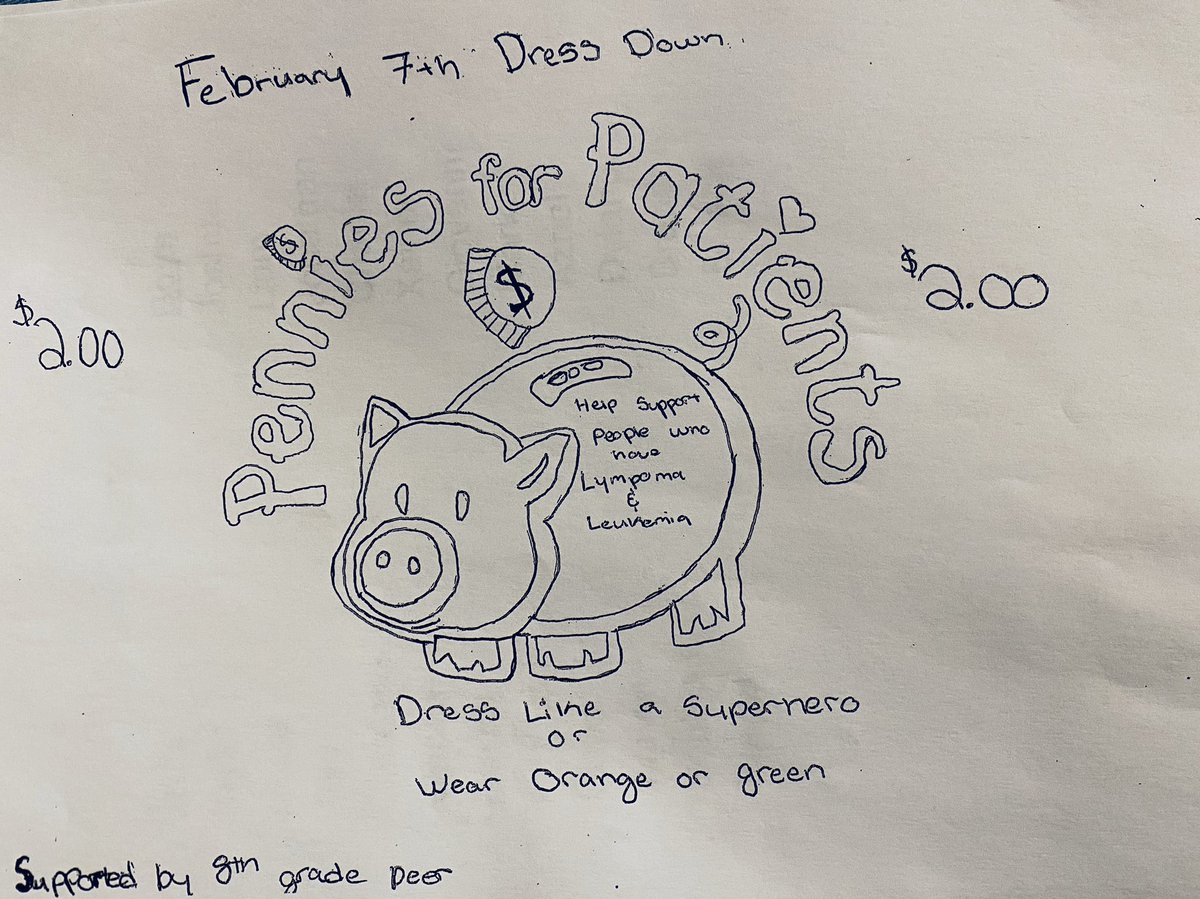 February 7th Dress Down
Pennies for Patients
$2.00
$2.00
$
Help Support
People who
have
Lympoma
&
Leukemia
Dress Like a Superhero
or
Wear Orange or green
Supported by 8th grade peer